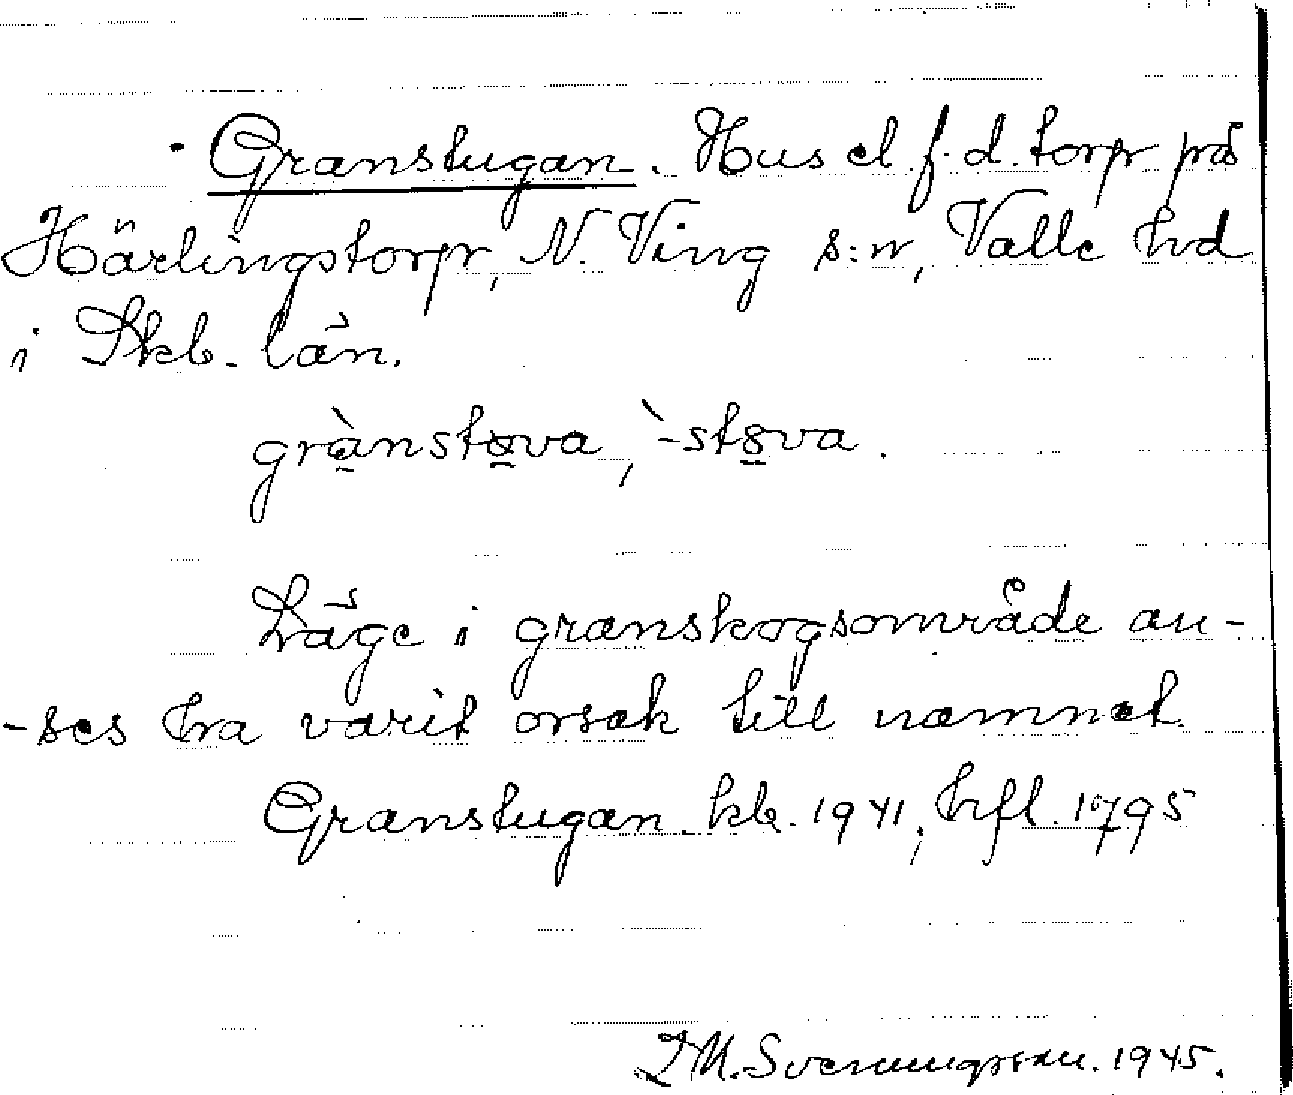 Granstugan. Hus el f.d. torp på
Härlingstorp, N. Ving s:n, Valle hd
i Skb. län.
grànstova, `-stova.
Läge i granskogsområde an-
-ses ha varit orsak till namnet.
Granstugan kb. 1941, hfl. 1795
Svenningsson. 1945.